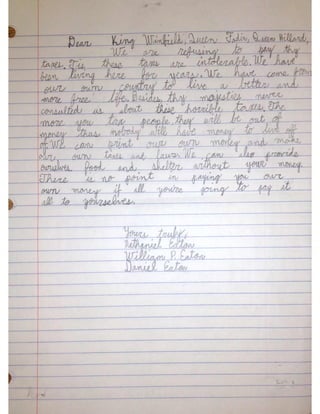 Dear King Winfield, Queen Fider, Queen Hillard,
We are refusing to pay thy
taxes. Tis these taxes are intolerable. We have
been living here for years. We have come from
our own country to live a better and
more free life. Besides, thy majesties never
consulted us about these horrible taxes. The
more you tax people they will be out of
money thus nobody will have money to live off
of. We can print our own money and make
our own taxes and laws. We can also provide
ourselves food and shelter without your money.
There is no point in paying you our
own money if all you're going to pay it
all to yourselves.
Yours truly,
Nathaniel Eaton
William P. Eaton
Daniel Eaton